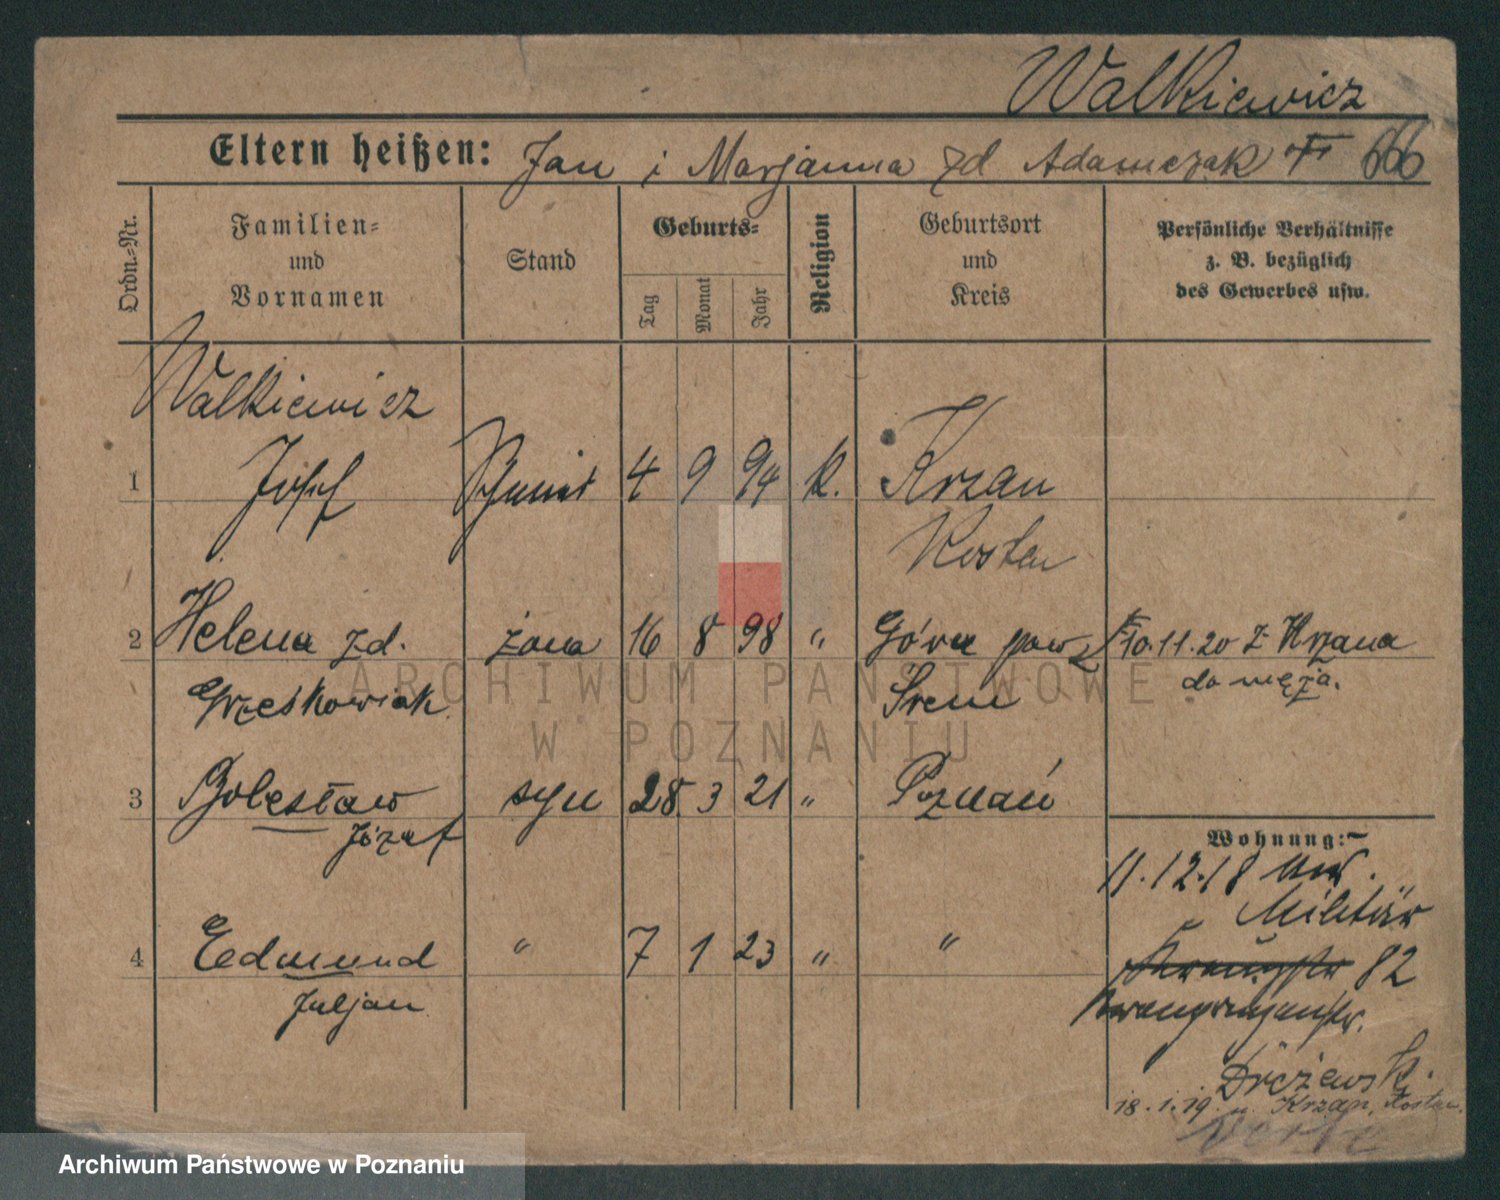 Walkiewicz
Eltern heißen: Jan i Marjanna zd Adamczak 666
Ordn.-Nr.
Familien-
und
Vornamen
Stand
Geburts-
Tag
Monat
Jahr
Religion
Geburtsort
und
Kreis
Persönliche Verhältnisse
z. B. bezüglich
des Gewerbes usw.
Walkiewicz
1 Josef Schmied 4 9 94 k. Krzan
Kosten
2 Helena zd. żona 16 8 98 " Góra pow 10.11.20 z Krzana
Grześkowiak Śrem do męża.
3 Bolesław syn 28. 3 21 " Poznań
Józef
Wohnung:
11.12.18 Militär
4 Edmund " 7 1 23 " " 82
Juljan
Kronprinzenstr.
18.1.19 n. Krzan, Kosten.
ARCHIWUM PAŃSTWOWE
W POZNANIU
Archiwum Państwowe w Poznaniu